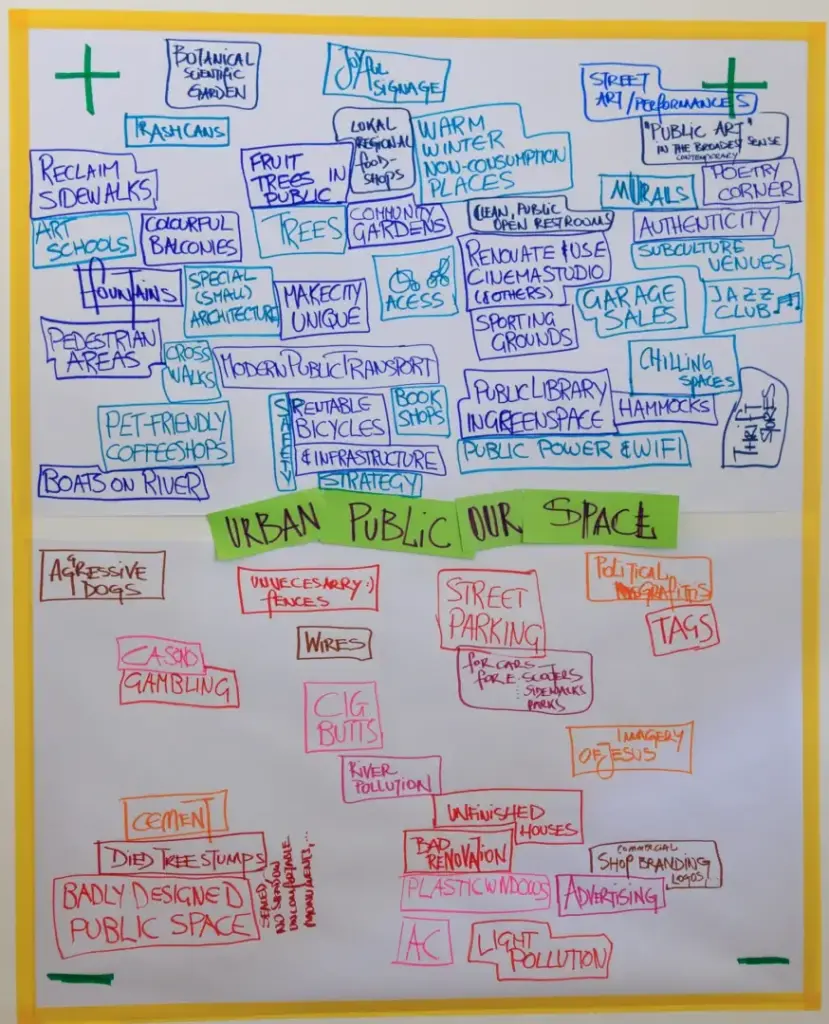 BOTANICAL
SCIENTIFIC
GARDEN
JOYful
SIGNAGE
STREET
ART/PERFORMANCES
TRASHCANS
LOKAL
REGIONAL
fooD-
SHOPS
WARM
WINTER
NON-CONSUMPTION
PLACES
"PUBLIC ART"
IN THE BROADEST SENSE
CONTEMPORARY
RECLAIM
SIDEWALKS
FRUIT
TREES IN
PUBLIC
MURALS
POETRY
CORNER
ART
SCHOOLS
COLOURFUL
BALCONIES
TREES
COMMUNITY
GARDENS
CLEAN, PUBLIC
OPEN RESTROOMS
AUTHENTICITY
SUBCULTURE
VENUES
FOUNTAINS
SPECIAL
(SMALL)
ARCHITECTURE
MAKECITY
UNIQUE
ACESS
RENOVATE & USE
CINEMASTUDIO
(& OTHERS)
GARAGE
SALES
JAZZ
CLUB
PEDESTRIAN
AREAS
CROSS
WALKS
MODERN PUBLIC TRANSPORT
SPORTING
GROUNDS
CHILLING
SPACES
PET-FRIENDLY
COFFEESHOPS
SAFETY
RENTABLE
BICYCLES
& INFRASTRUCTURE
STRATEGY
BOOK
SHOPS
PUBLIC LIBRARY
IN GREENSPACE
HAMMOCKS
THRIFT
STORES
PUBLIC POWER & WIFI
BOATS ON RIVER
URBAN PUBLIC OUR SPACE
AGRESSIVE
DOGS
UNNECESARRY :)
fENCES
STREET
PARKING
POLITICAL
GRAFITTIS
TAGS
WIRES
for CARS
for E-SCOOTERS
SIDEWALKS
PARKS
CASINO
GAMBLING
CIG
BUTTS
IMAGERY
OF JESUS
RIVER
POLLUTION
CEMENT
UNFINISHED
HOUSES
DIED TREE STUMPS
BAD
RENOVATION
COMMERCIAL
SHOP BRANDING
LOGOS
BADLY DESIGNED
PUBLIC SPACE
SEALED,
NO SHADOW
UNCOMFORTABLE
MONUMENTS,...
PLASTIC WINDOWS
ADVERTISING
AC
LIGHT
POLLUTION